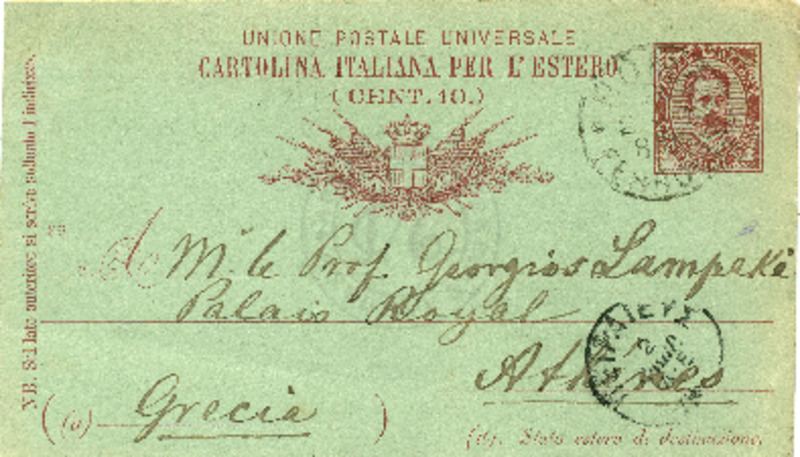 UNIONE POSTALE UNIVERSALE
CARTOLINA ITALIANA PER L'ESTERO
(CENT. 10.)
NB. Sul lato anteriore si scrive soltanto l'indirizzo.
Mr. le Prof. Georgios Lampaké
Palais Royal
ΠΕΙΡΑΙΕΥΣ
Athènes
(a) Grecia
(a). Stato estero di destinazione.